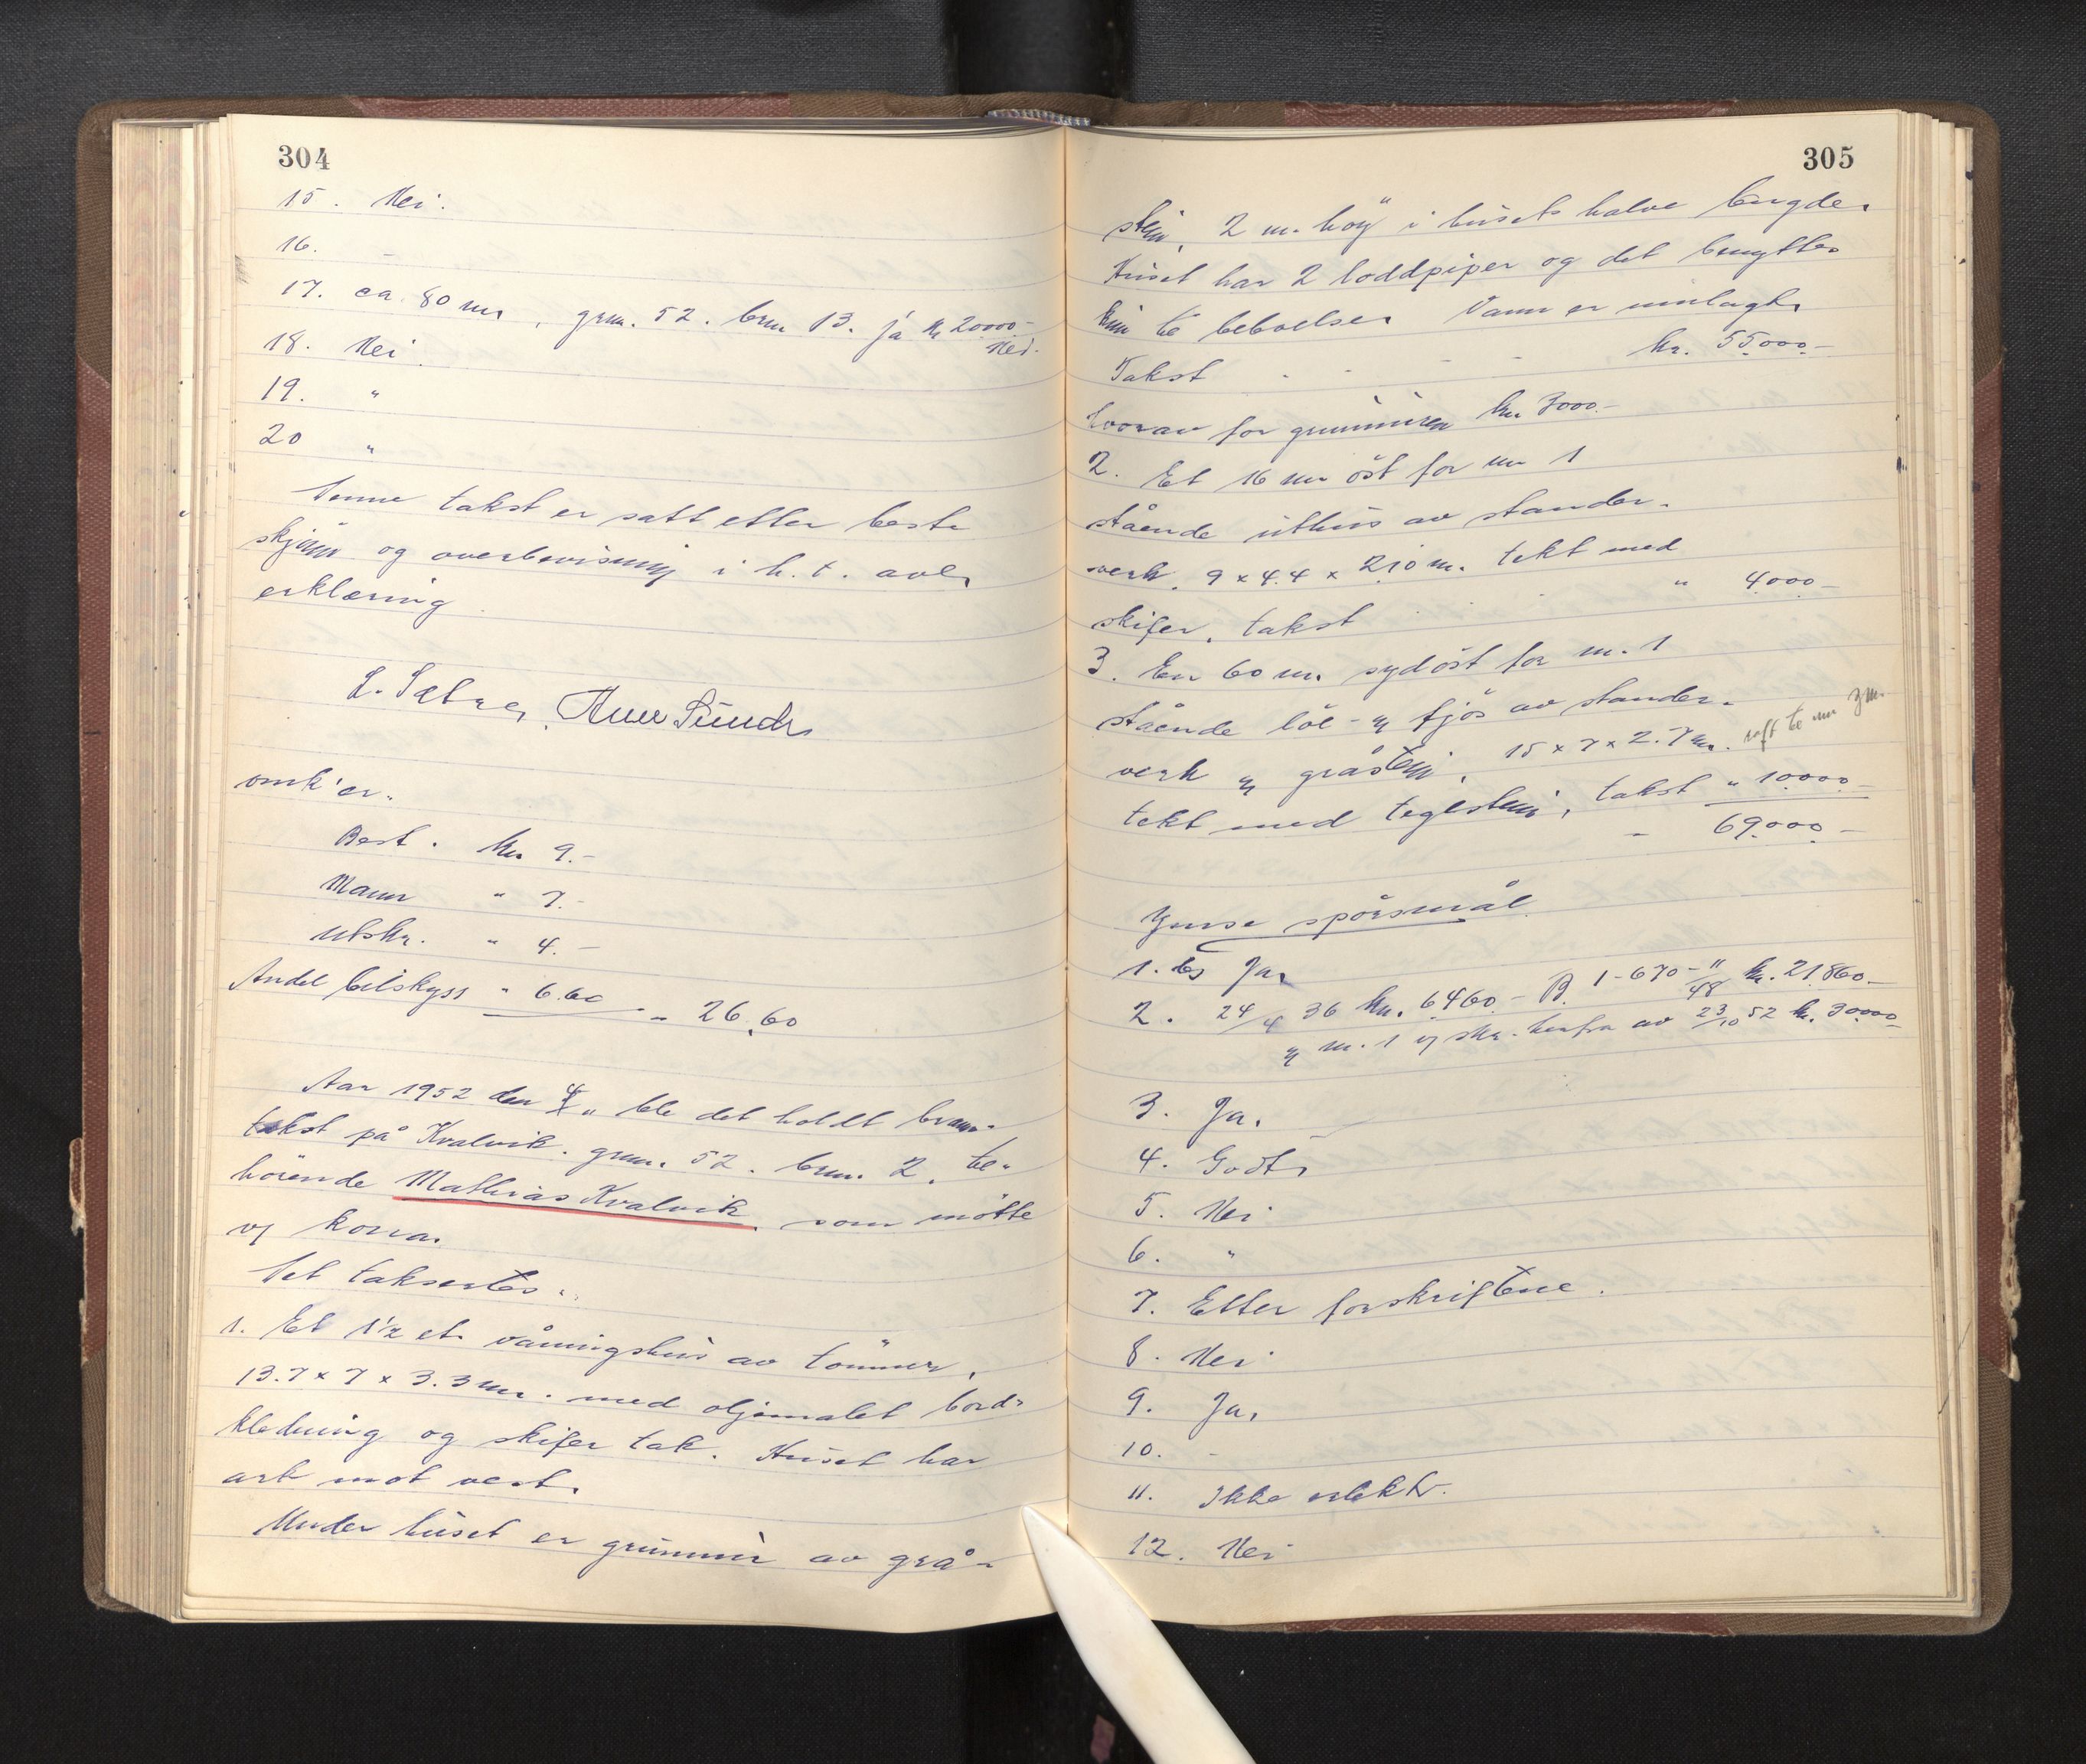 304
15. Nei.
16. -
17. ca. 80 m, grnr. 52. brnr 13. ja kr 20000.-
18. Nei. Nei.
19. "
20 "
Denne takst er satt etter beste
skjønn og overbevisning i h.t. avl.
erklæring
L. Sætre,
omk'er.
Best. kr 9.-
Mann " 7.-
Utskr. " 4.-
Andel bilskyss " 6.60 - " 26,60
Aar 1952 den ble det holdt brann-
takst på Kvalvik. grnr. 52. brnr. 2. til-
hörende Mathias Kvalvik, som mötte
og kona.
Det taksertes:
1. Et 1½ et. våningshus av tömmer,
13.7 x 7 x 3.3 m. med oljemalet bord-
kledning og skifer tak. Huset har
ark mot vest.
Under huset er grunnmur av grå-
305
stein, 2 m. höy i husets halve lengde.
Huset har 2 loddpiper og det benyttes
kun til beboelse. Vann er innlagt.
Takst - - - - kr. 55.000.-
hvorav for grunnmuren kr 3000.-
2. Et 16 m öst for nr 1
stående uthus av stander-
verk. 9 x 4.4 x 2,10 m. tekt med
skifer, takst " 4.000-
3. En 60 m. sydöst for nr. 1
stående löe- og fjös av stander-
verk og gråstein, 15 x 7 x 2.7 m.
tekt med teglstein, takst " 10.000-
- 69.000-
Ymse spörsmål.
1. Ja,
2. 24/4 36 kr. 6460- B. 1-670-"/48 kr. 21.860-
og nr. 1 og skr. herfra av 23/10 52 kr. 30.000-
3. Ja.
4. Godt,
5. Nei
6. "
7. Etter forskriftene.
8. Nei
9. Ja,
10. -
11. Ikke elektr.
12. Nei